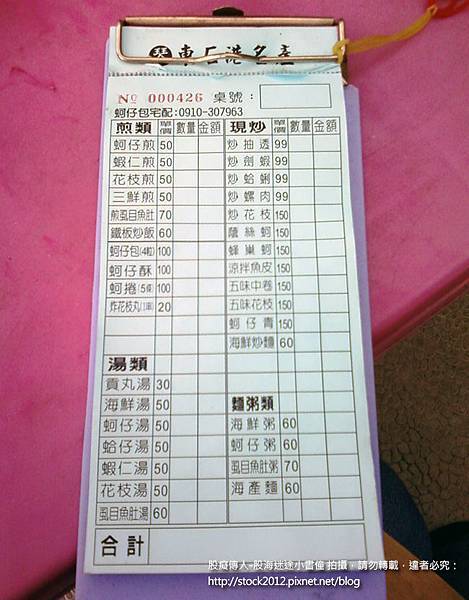 東石港名產
No 000426 桌號：
蚵仔包宅配:0910-307963
煎類 單價 數量 金額
蚵仔煎 50
蝦仁煎 50
花枝煎 50
三鮮煎 50
煎虱目魚肚 70
鐵板炒飯 60
蚵仔包(4粒) 100
蚵仔酥 100
蚵捲(5條) 100
炸花枝丸(1串) 20
湯類
貢丸湯 30
海鮮湯 50
蚵仔湯 50
蛤仔湯 50
蝦仁湯 50
花枝湯 50
虱目魚肚湯 60
現炒 單價 數量 金額
炒抽透 99
炒劍蝦 99
炒蛤蜊 99
炒螺肉 99
炒花枝 150
蘿絲蚵 150
蜂巢蚵 150
涼拌魚皮 150
五味中卷 150
五味花枝 150
蚵仔青 150
海鮮炒麵 60
麵粥類
海鮮粥 60
蚵仔粥 60
虱目魚肚粥 70
海產麵 60
合計
股癡傳人-股海迷途小書僮 拍攝，請勿轉載，違者必究：
http://stock2012.pixnet.net/blog